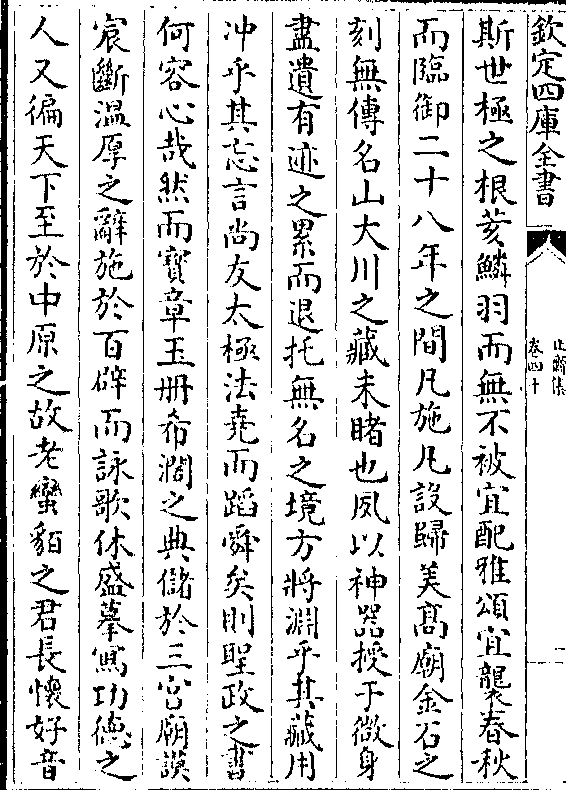 欽定四庫全書
止齋集
卷四十
斯世極之根荄鱗羽而無不被宜配雅頌宜襲春秋
而臨御二十八年之間凡施凡設歸美髙廟金石之
刻無傳名山大川之藏未睹也夙以神器授于微身
盡遺有迹之累而退托無名之境方將淵乎其藏用
冲乎其忘言尚友太極法堯而蹈舜矣則聖政之書
何容心哉然而寶章玉冊希濶之典儲於三宫廟謨
宸斷溫厚之辭施於百辟而詠歌休盛摹寫功德之
人又徧天下至於中原之故老蠻貊之君長懷好音